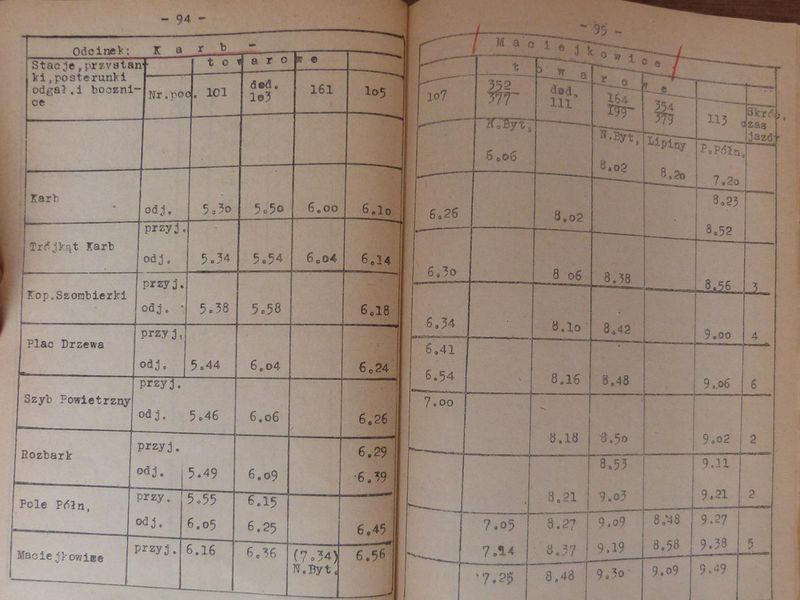 - 94 -
Odcinek: K a r b -
Stacje,przystan t o w a r o w e
ki,posterunki
odgał.i boczni- Nr.poc. 101 dod. 103 161 105
ce
Karb odj. 5.30 5.50 6.00 6.10
przyj.
Trójkąt Karb odj. 5.34 5.54 6.04 6.14
przyj.
Kop.Szombierki odj. 5.38 5.58 6.18
przyj.
Plac Drzewa odj. 5.44 6.04 6.24
przyj.
Szyb Powietrzny odj. 5.46 6.06 6.26
przyj. 6.29
Rozbark odj. 5.49 6.09 6.39
przy. 5.55 6.15
Pole Półn, odj. 6.05 6.25 6.45
Maciejkowice przyj. 6.16 6.36 (7.34) 6.56
N.Byt.
- 95 -
M a c i e j k o w i c e
t o w a r o w e
107 352 dod. 164 354 113 Skrób.
377 111 199 379 czas
jazdy
K.Byt, N.Byt, Lipiny P.Półn,
6.06 8.02 8.20 7.20
8.23
6.26 8.02 8.52
6.30 8 06 8.38 8.56 3
6.34 8.10 8.42 9.00 4
6.41
6.54 8.16 8.48 9.06 6
7.00
8.18 8.50 9.02 2
8.53 9.11
8.21 9.03 9.21 2
7.05 8.27 9.09 8.48 9.27
7.14 8.37 9.19 8.58 9.38 5
7.25 8.48 9.30 9.09 9.49